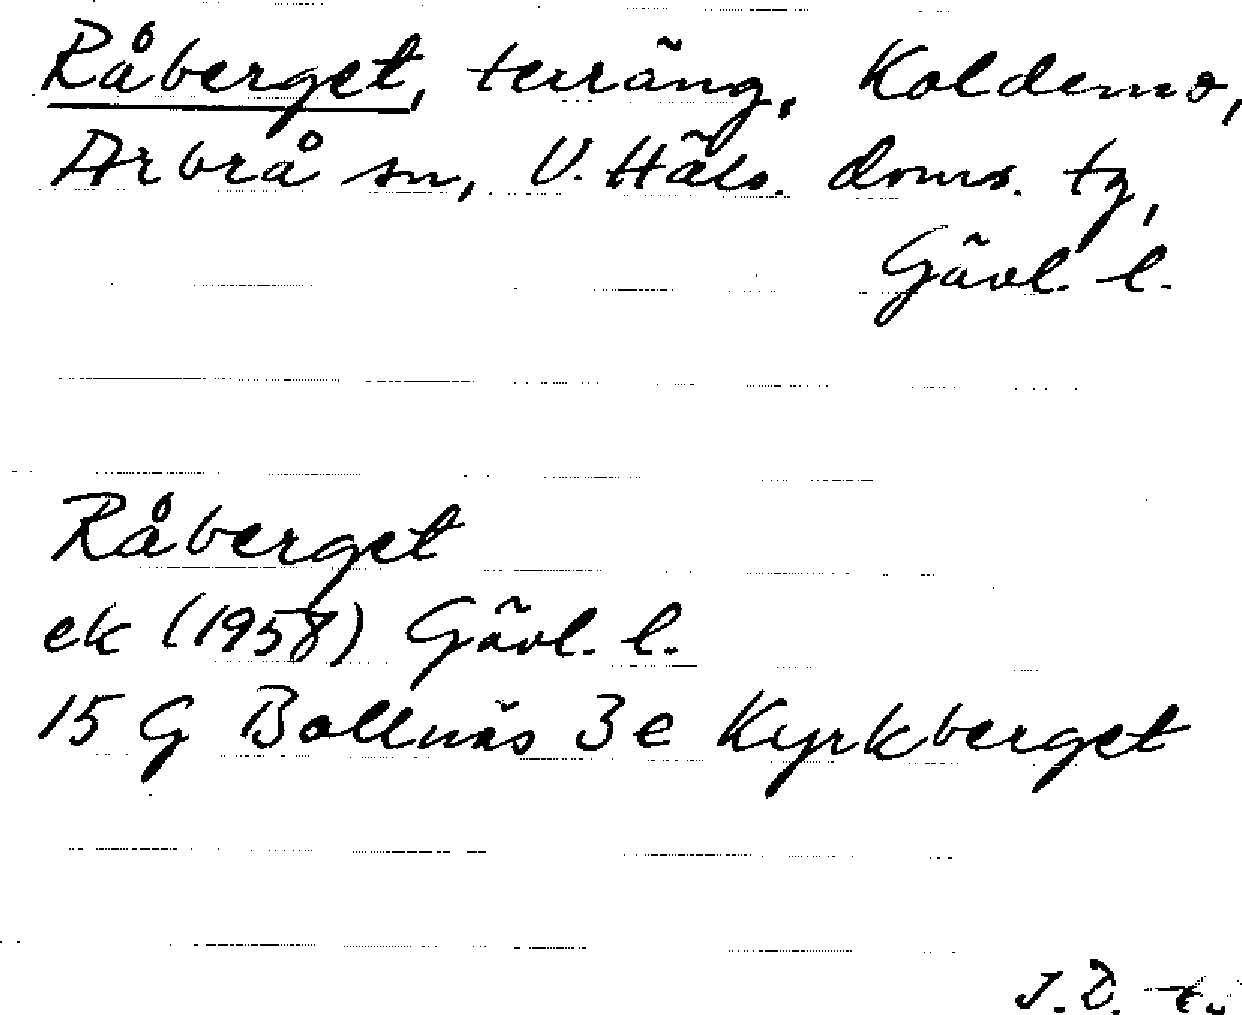 Råberget, terräng, Koldemo,
Arbrå sn, V. Häls. doms. tg,
Gävl. l.
Råberget
ek (1958) Gävl. l.
15 G Bollnäs 3 e Kyrkberget
J.D.